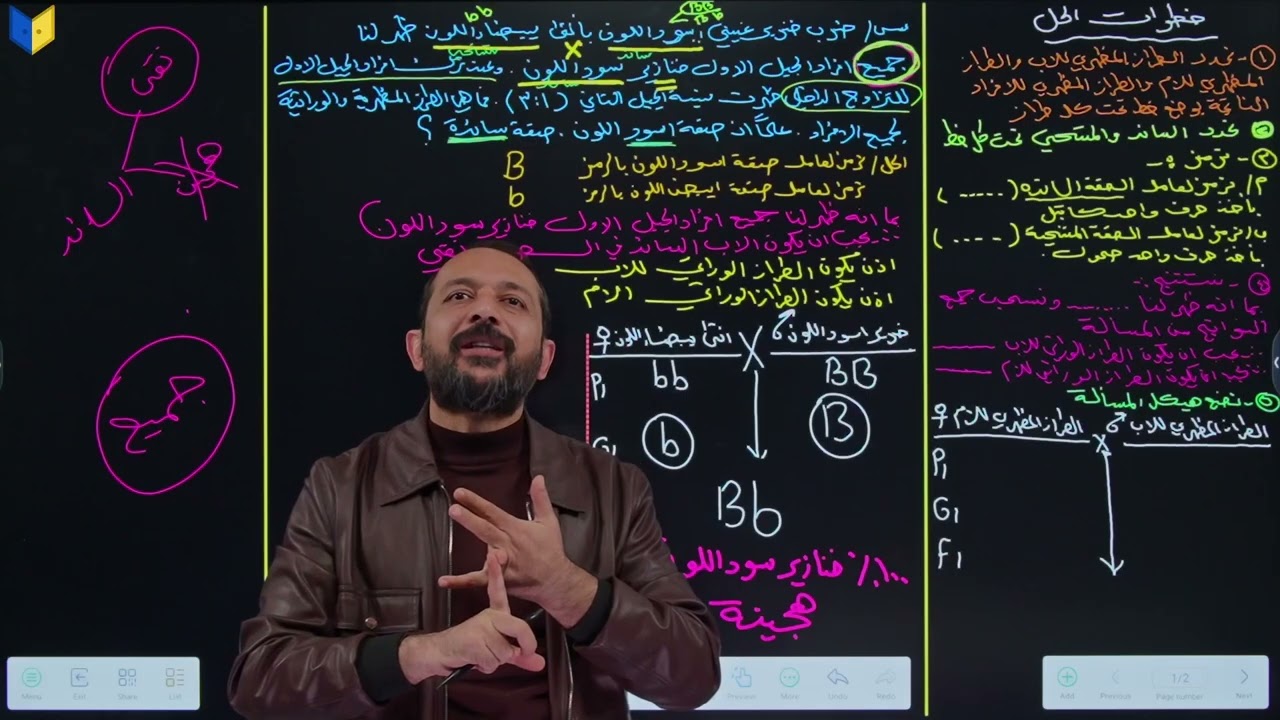 خطوات الحل
① - نحدد الطراز المظهري للاب والطراز
المظهري للام والطراز المظهري للافراد
الناتجة بوضع خط تحت كل طراز
② نحدد السائد والمتنحي تحت كل خط
③ - نرمز :-
أ/ نرمز لعامل الصفة السائدة (.....)
باخذ حرف واحد كابتل
ب/ نرمز لعامل الصفة المتنحية (....)
باخذ حرف واحد صمول .
④ - نستنتج :-
بما انه ظهر لنا ...... ونسحب جميع
النواتج من المسألة
∴ يجب ان يكون الطراز الوراثي للاب
⑤ - نضع هيكل المسألة
الطراز المظهري للاب ♂ X الطراز المظهري للام ♀
P1
G1
F1
BB
Bb
bb
س/ ضرب خنزير غيني اسود اللون بانثى بيضاء اللون ظهر لنا
سائد
جميع افراد الجيل الاول خنازير سود اللون .
للتزاوج الداخلي ظهرت نسبة الجيل الثاني (٣:١) . ما هي الطرز المظهرية والوراثية
لجميع الافراد . علماً ان صفة اسود اللون . صفة سائدة ؟
الحل / نرمز لعامل صفة اسود اللون بالرمز B
نرمز لعامل صفة ابيض اللون بالرمز b
بما انه ظهر لنا جميع افراد الجيل الاول خنازير سود اللون
∴ يجب ان يكون الاب السائد في نقي
اذن يكون الطراز الوراثي للاب
اذن يكون الطراز الوراثي الام
خنزير اسود اللون ♂ X انثى بيضاء اللون ♀
P1 bb BB
G1 b B
Bb
١٠٠٪ خنازير سود اللون
هجينة
نقي
هجين
السائد
جميع
Menu
Exit
Share
List
Preview
More
Undo
Redo
Add
Previous
1/2
Page number
Next